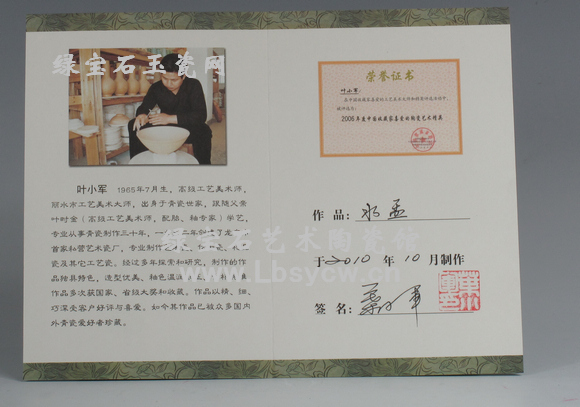 绿宝石玉瓷网
叶小军 1965年7月生，高级工艺美术师，
丽水市工艺美术大师，出身于青瓷世家，跟随父亲
叶时金（高级工艺美术师，配胎、釉专家）学艺，
专业从事青瓷制作三十年，一
首家私营艺术瓷厂，专业制作
瓷及其它工艺瓷。经过多年探索和研究，制作的作
品独具特色，造型优美、釉色温润
作品多次获国家、省级大奖和收藏。作品以精、细、
巧深受客户好评与喜爱。如今其作品已被众多国内
外青瓷爱好者珍藏。
荣誉证书
叶小军：
2006年度中国收藏家喜爱的陶瓷艺术精英
作品：水盂
于2010年10月制作
签名：叶小军
绿宝石艺术陶瓷馆
www.Lbsycw.cn